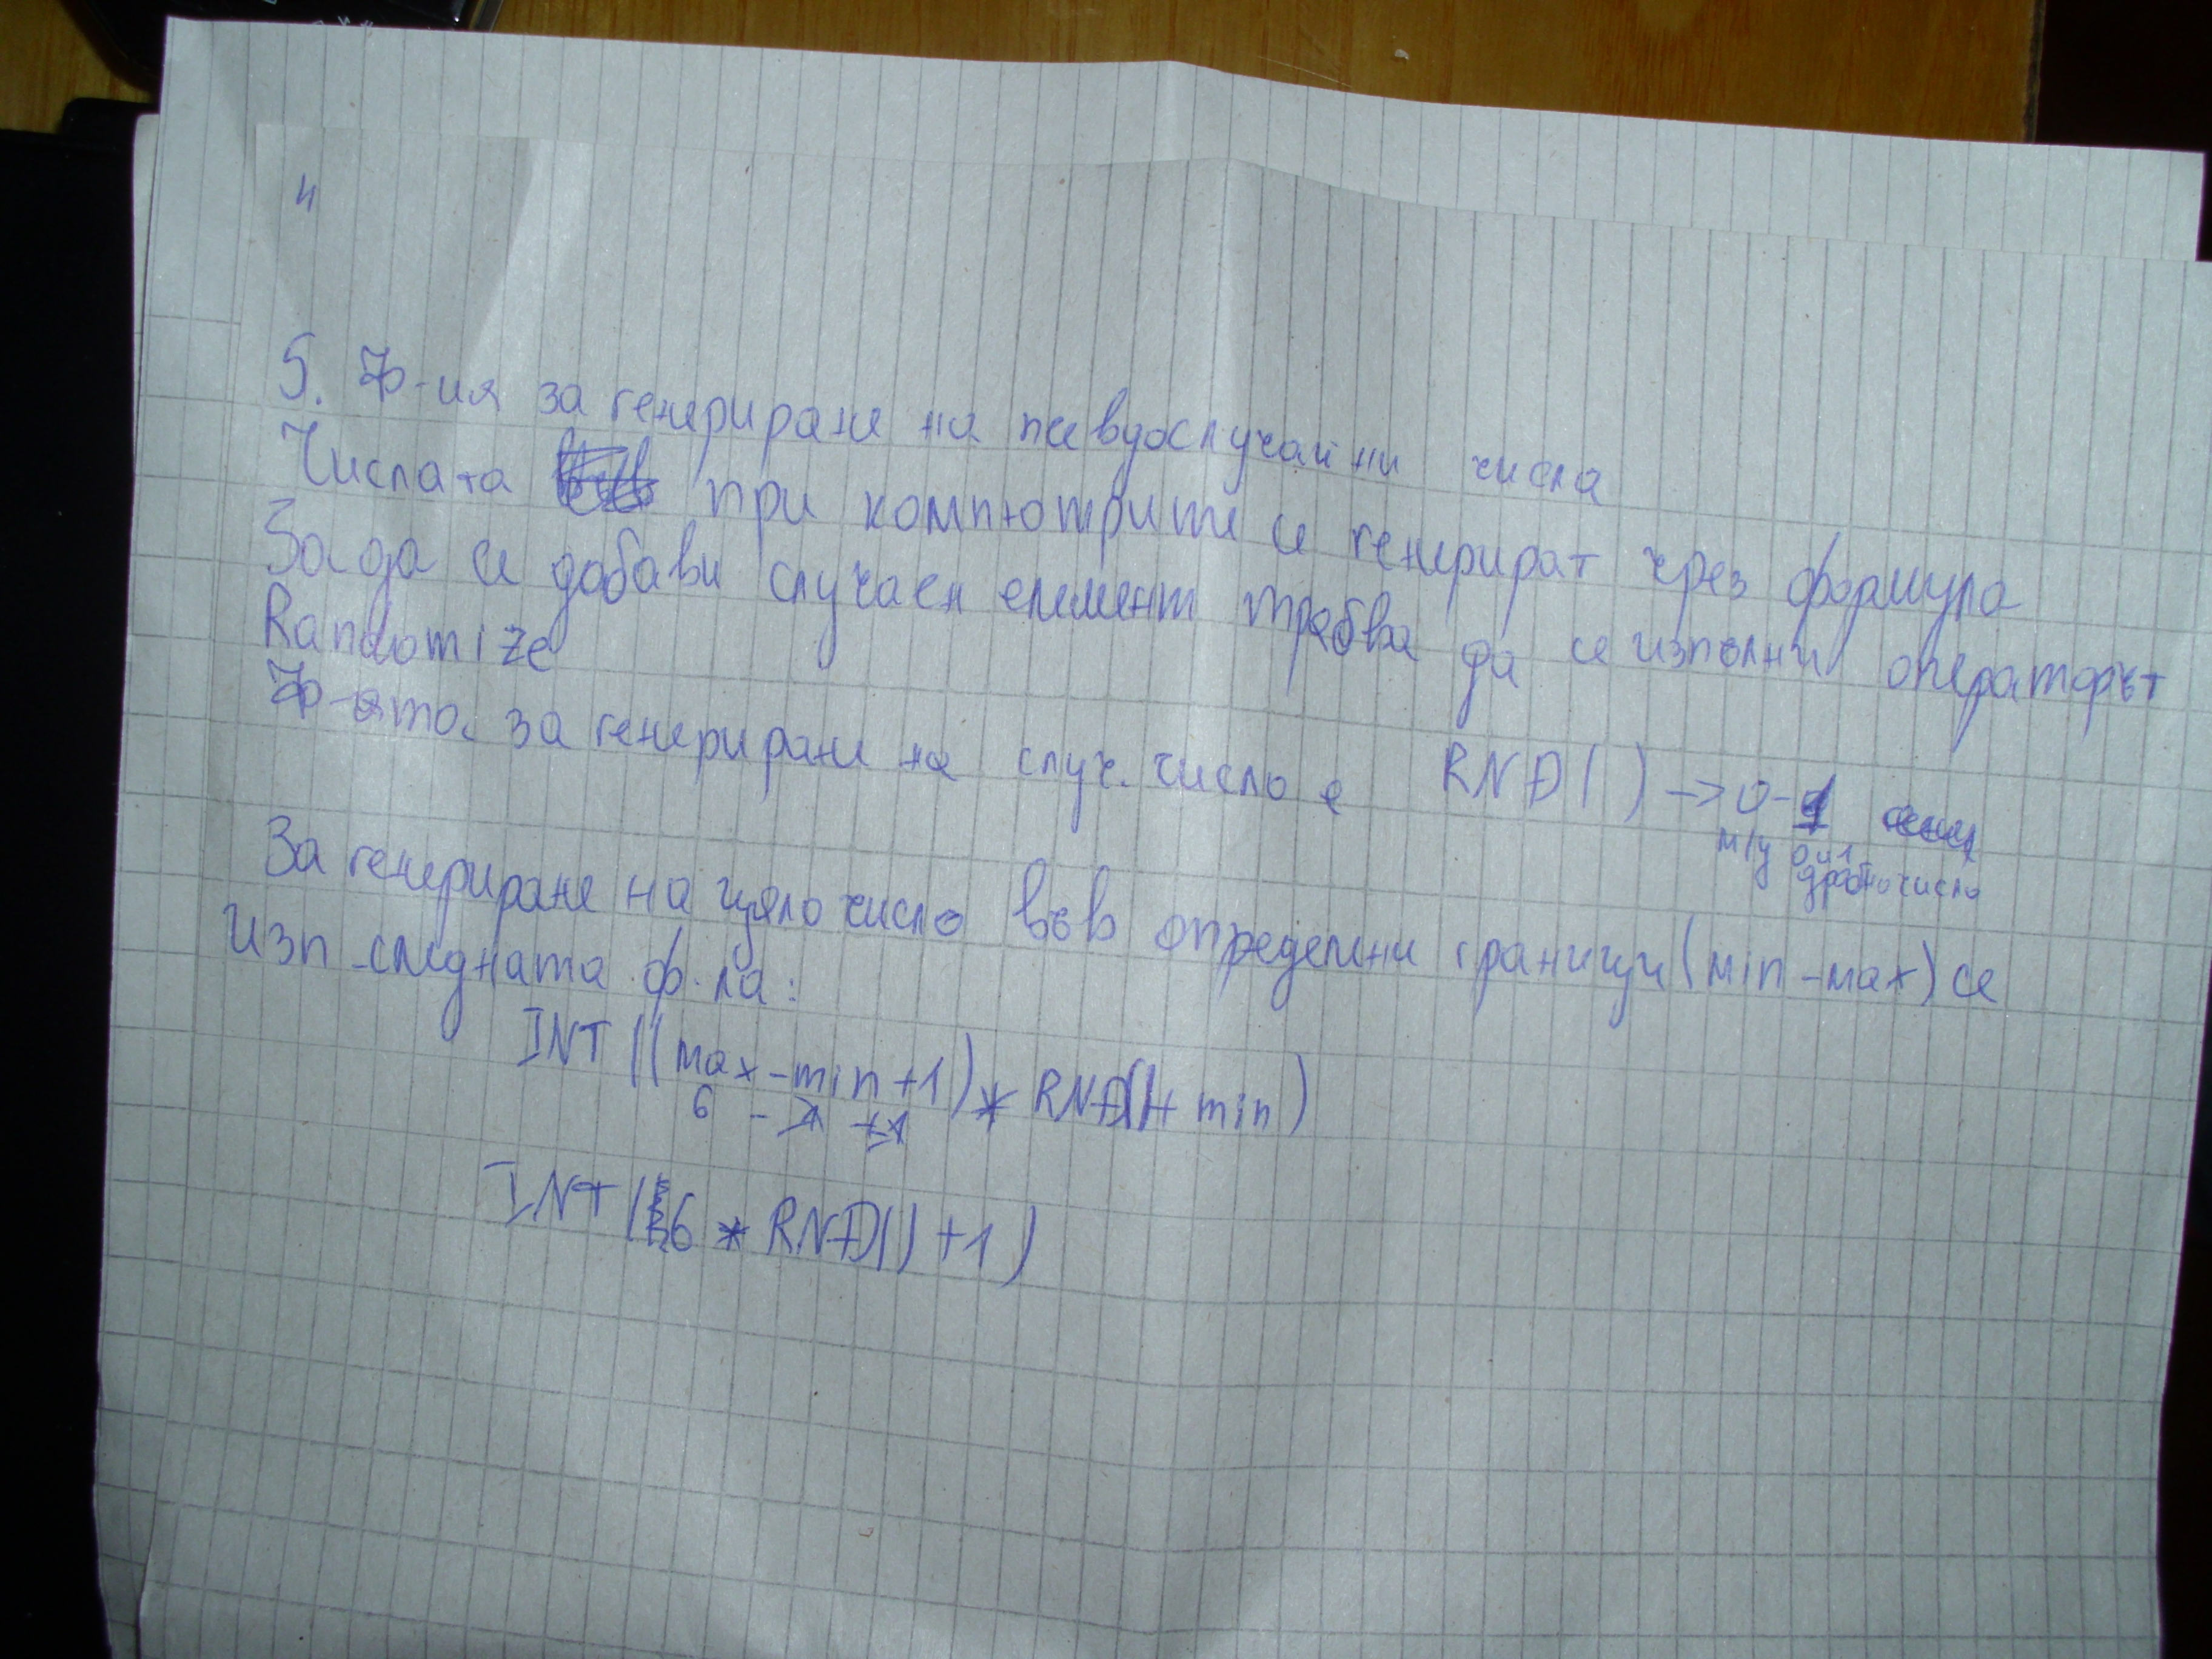 4
5. Ф-ия за генериране на псевдослучайни числа
Числата при компютрите се генерират чрез формула
За да се добави случаен елемент трябва да се изпълни операторът
Randomize
Ф-ята за генериране на случ. число е RND() -> 0-1
м/у 0 и 1
дробно число
За генериране на цяло число във определени граници (min-max) се
изп следната ф.ла:
INT((max-min+1)*RND()+min)
6 -1 +1
INT(6*RND()+1)